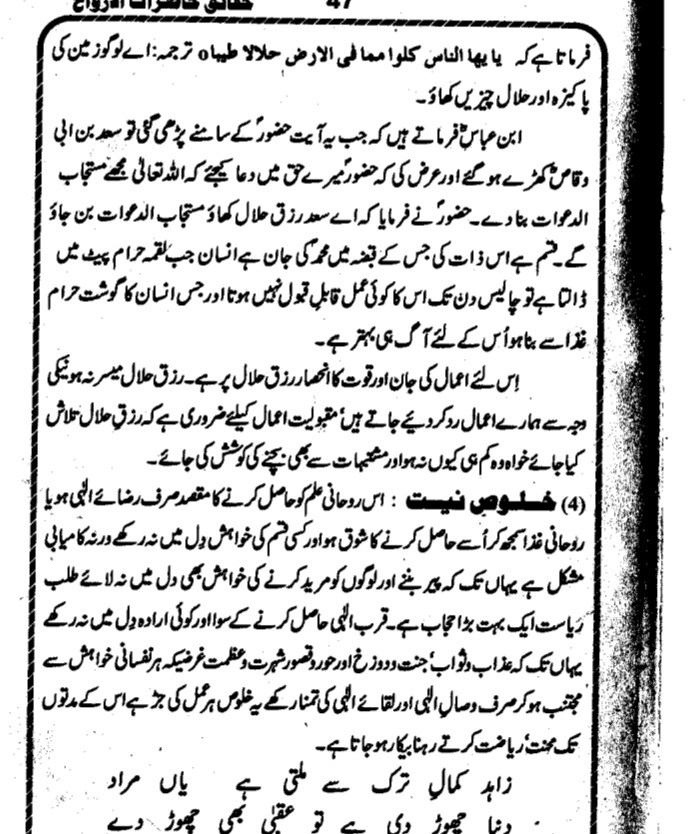 47 حقائق حاضرات الارواح
فرماتا ہے کہ یایھا الناس کلوا مما فی الارض حلالا طیبا٥ ترجمہ: اے لوگو زمین کی
پاکیزہ اور حلال چیزیں کھاؤ۔
ابن عباسؓ فرماتے ہیں کہ جب یہ آیت حضورؐ کے سامنے پڑھی گئی تو سعد بن ابی
وقاصؓ کھڑے ہو گئے اور عرض کی کہ حضورؐ میرے حق میں دعا کیجئے کہ اللہ تعالیٰ مجھے مستجاب
الدعوات بنا دے۔ حضورؐ نے فرمایا کہ اے سعد رزق حلال کھاؤ مستجاب الدعوات بن جاؤ
گے۔ قسم ہے اس ذات کی جس کے قبضہ میں محمدؐ کی جان ہے انسان جب لقمہ حرام پیٹ میں
ڈالتا ہے تو چالیس دن تک اس کا کوئی عمل قابل قبول نہیں ہوتا اور جس انسان کا گوشت حرام
غذا سے بنا ہو اُس کے لئے آگ ہی بہتر ہے۔
اِس لئے اعمال کی جان اور قوت کا انحصار رزق حلال پر ہے۔ رزق حلال میسر نہ ہونیکی
وجہ سے ہمارے اعمال رد کر دیئے جاتے ہیں' مقبولیت اعمال کیلئے ضروری ہے کہ رزق حلال تلاش
کیا جائے خواہ وہ کم ہی کیوں نہ ہو اور مشتبہات سے بھی بچنے کی کوشش کی جائے۔
(4) خلوص نیت : اس روحانی علم کو حاصل کرنے کا مقصد صرف رضائے الٰہی ہو یا
روحانی غذا سمجھ کر اُسے حاصل کرنے کا شوق ہو اور کسی قسم کی خواہش دِل میں نہ رکھے ورنہ کامیابی
مشکل ہے یہاں تک کہ پیر بننے اور لوگوں کو مرید کرنے کی خواہش بھی دل میں نہ لائے طلب
ریاست ایک بہت بڑا حجاب ہے۔ قرب الٰہی حاصل کرنے کے سوا اور کوئی ارادہ دِل میں نہ رکھے
یہاں تک کہ عذاب و ثواب' جنت و دوزخ اور حور و قصور شہرت و عظمت غرضیکہ ہر نفسانی خواہش سے
مجتنب ہو کر صرف وصالِ الٰہی اور لقائے الٰہی کی تمنا رکھے یہ خلوص ہر عمل کی جڑ ہے اس کے مدتوں
تک محنت' ریاضت کرتے رہنا بیکار ہو جاتا ہے۔
زاہد کمالِ ترک سے ملتی ہے یاں مراد
دنیا چھوڑ دی ہے تو عقبیٰ بھی چھوڑ دے